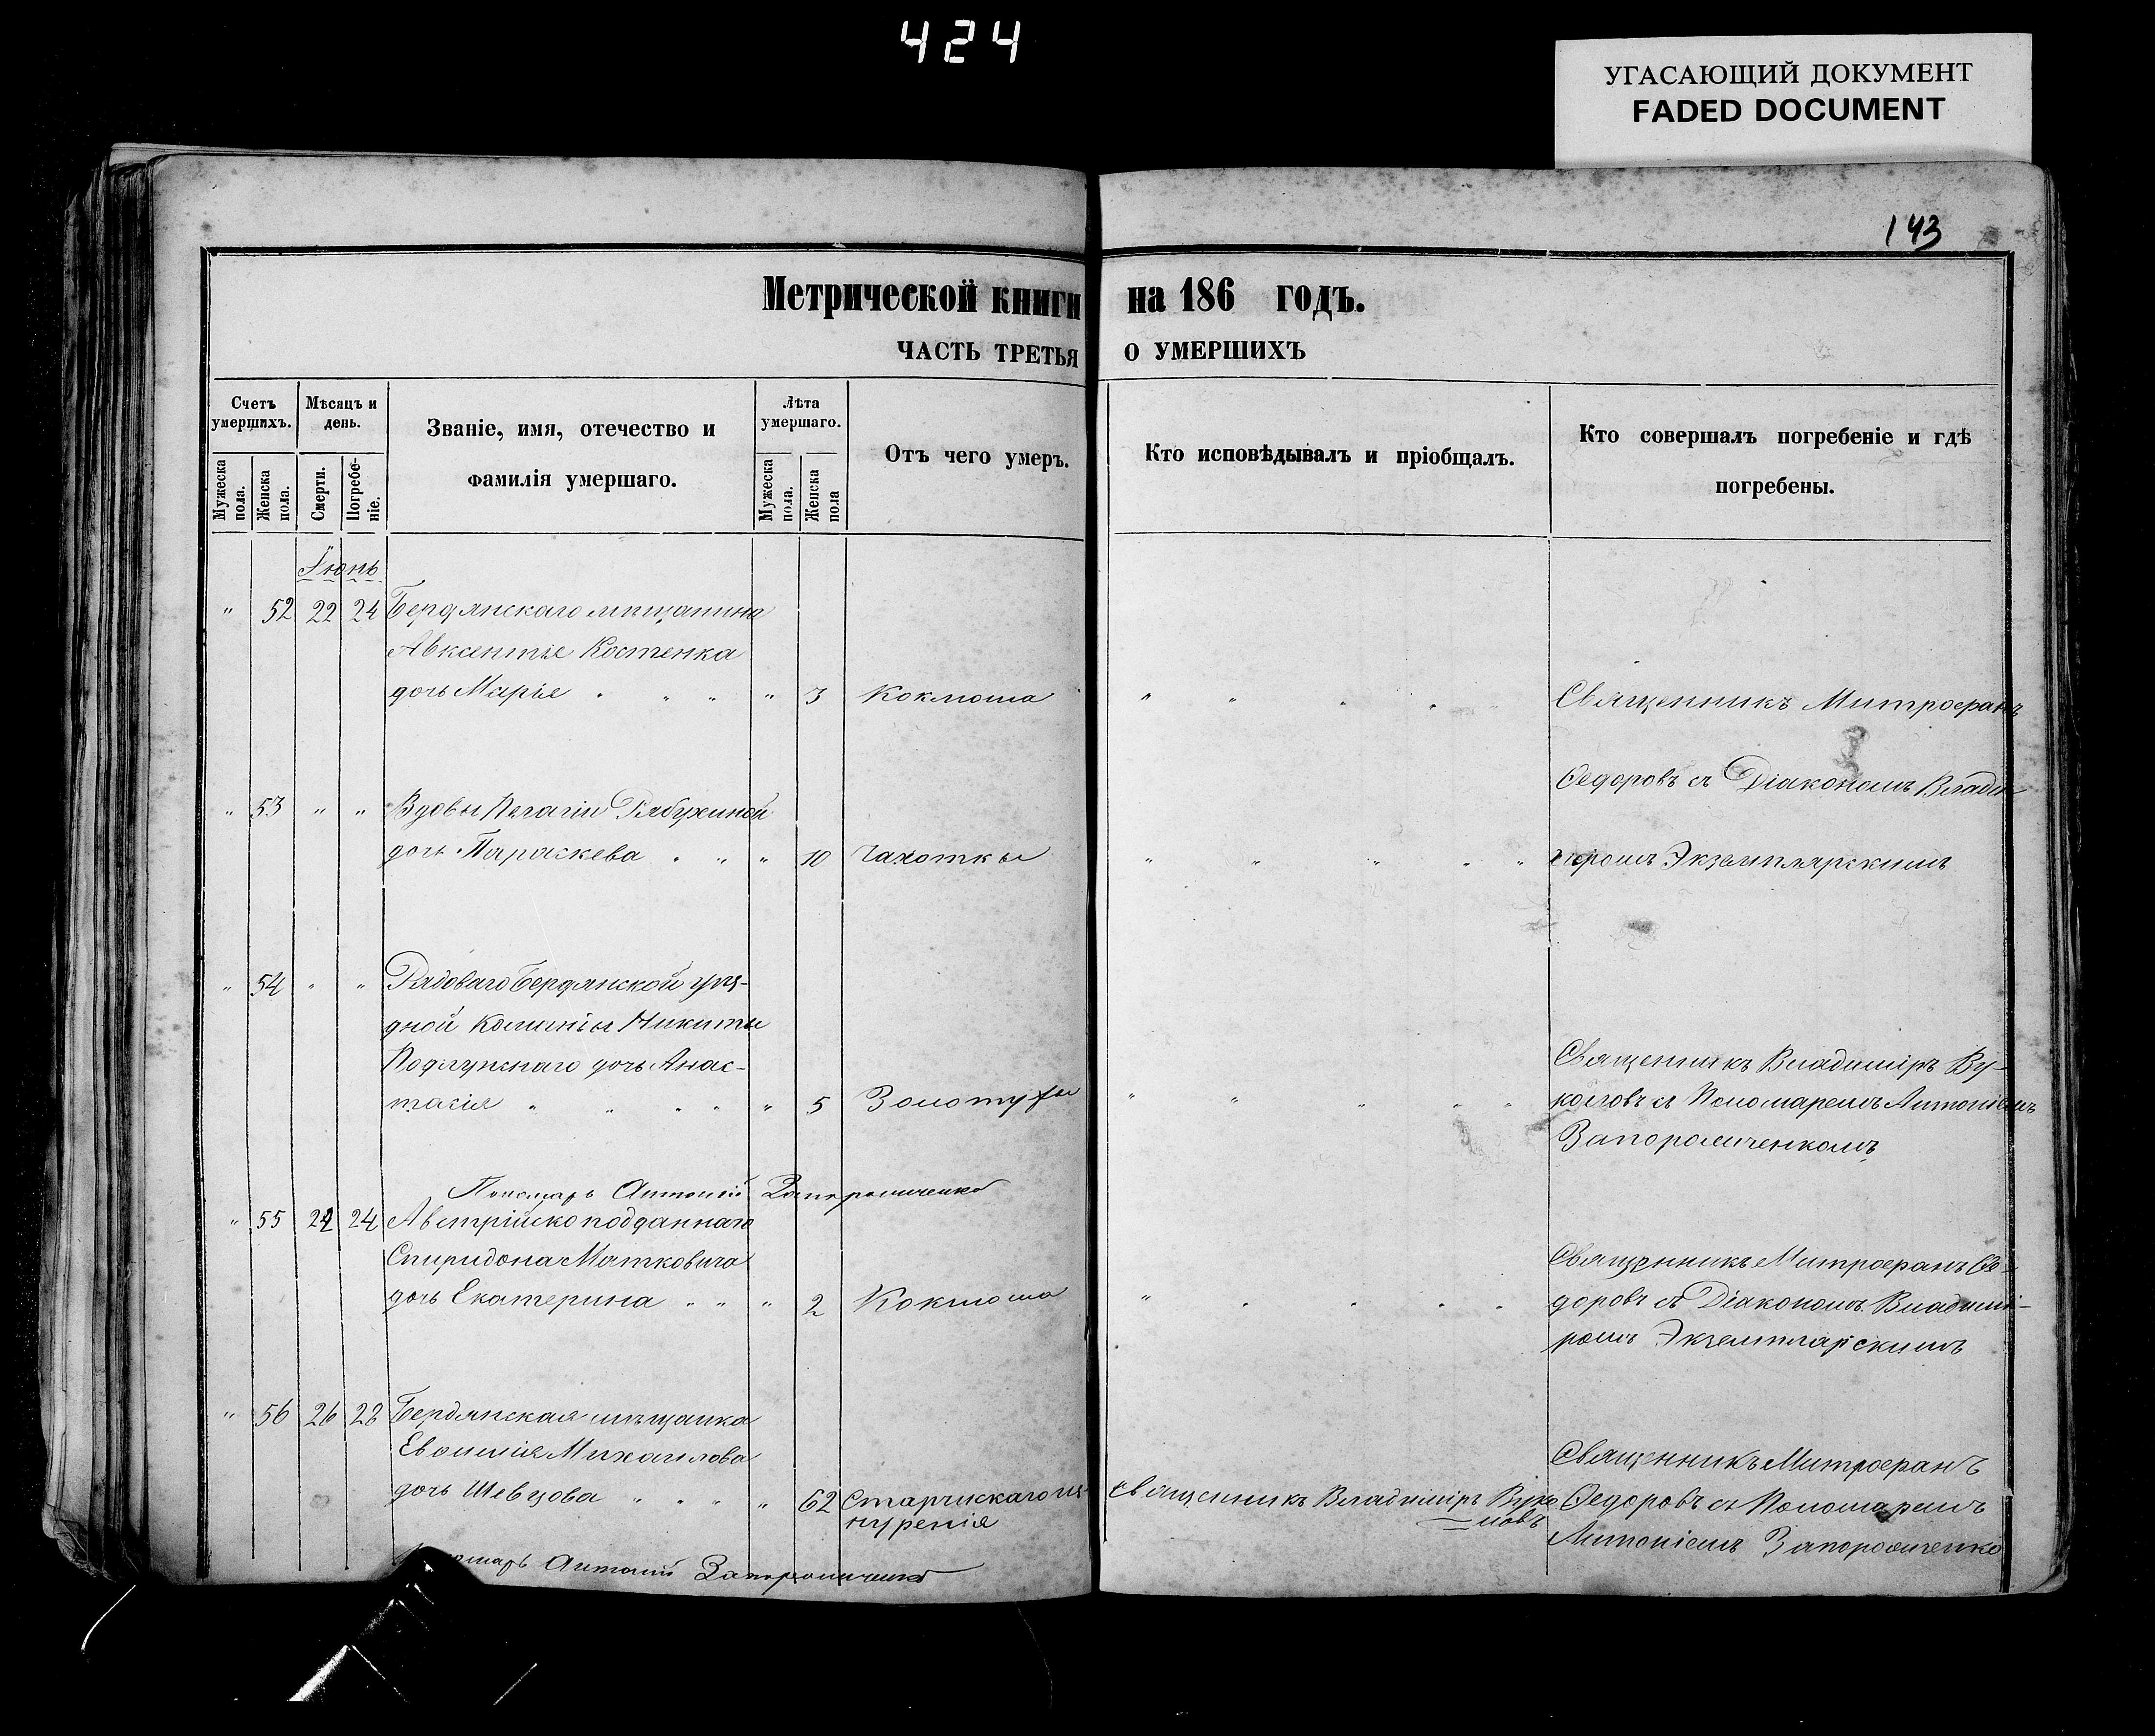 424
УГАСАЮЩИЙ ДОКУМЕНТ
FADED DOCUMENT
143
Метрической книги на 186 годъ.
ЧАСТЬ ТРЕТЬЯ О УМЕРШИХЪ
Счетъ умершихъ.
Мужеска пола.
Женска пола.
Мѣсяцъ и день.
Смерти.
Погребеніе.
Званіе, имя, отечество и
фамилія умершаго.
Лѣта умершаго.
Мужеска пола.
Женска пола
Отъ чего умеръ.
Кто исповѣдывалъ и пріобщалъ.
Кто совершалъ погребеніе и гдѣ
погребены.
Іюнь
" 52 22 24 Бердянскаго мѣщанина
Авксентіе Костенка
дочь Маріе " " " " 3 Коклюша " " " " Священникъ Митрофанъ
Федоровъ съ Діакономъ Влади
" 53 " " Вдовы Пелагіи Рябухиной
дочь Параскева " " " 10 Чахотки " " " " " міромъ Экземплярскимъ
" 54 " " Рядоваго Бердянской уѣз-
дной команды Никиты
дочь Анас-
тасія " " " " " 5 Золотухи " " " " "
Священникъ Владиміръ Ву-
коловъ съ Пономаремъ Антоніемъ
Запорожченкомъ
Пономарь Антоній Запорожченко
" 55 22 24 Австрійско подданнаго
Спиридона Матковича
дочь Екатерина " " " 2 Коклюша " " " " "
Священникъ Митрофанъ Фе-
доровъ съ Діакономъ Владимі-
ромъ Экземплярскимъ
" 56 26 28 Бердянская мѣщанка
Евфимія Михайлова
дочь Шевцова " " " " 62 Старческаго из-
нуренія
Священникъ Владиміръ Вуко
=ловъ
Священникъ Митрофанъ
Федоровъ съ Пономаремъ
Антоніемъ Запорожченко
Антоній Запорожченко